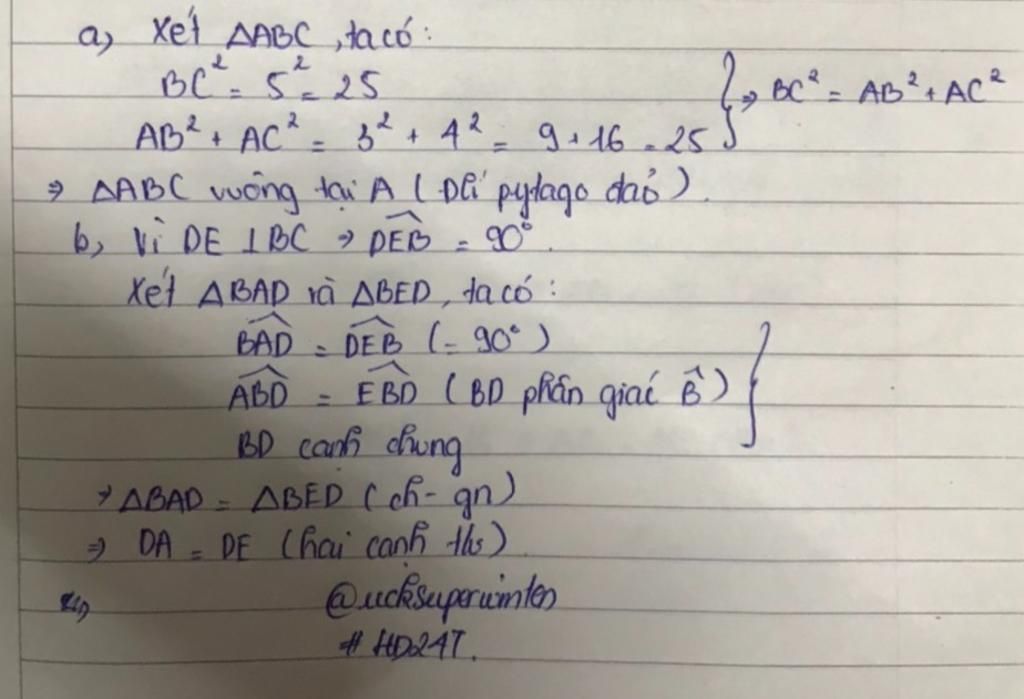 a, Xét ΔABC, ta có:
BC² = 5² = 25
AB² + AC² = 3² + 4² = 9 + 16 = 25 } ⇒ BC² = AB² + AC²
⇒ ΔABC vuông tại A (Đlí pytago đảo).
b, Vì DE ⊥ BC ⇒ \widehat{DEB} = 90°.
Xét ΔBAD và ΔBED, ta có:
\widehat{BAD} = \widehat{DEB} (= 90°)
\widehat{ABD} = \widehat{EBD} (BD phân giác \widehat{B})
BD cạnh chung }
⇒ ΔBAD = ΔBED (ch - gn)
⇒ DA = DE (hai cạnh tứ)
#HD24T.